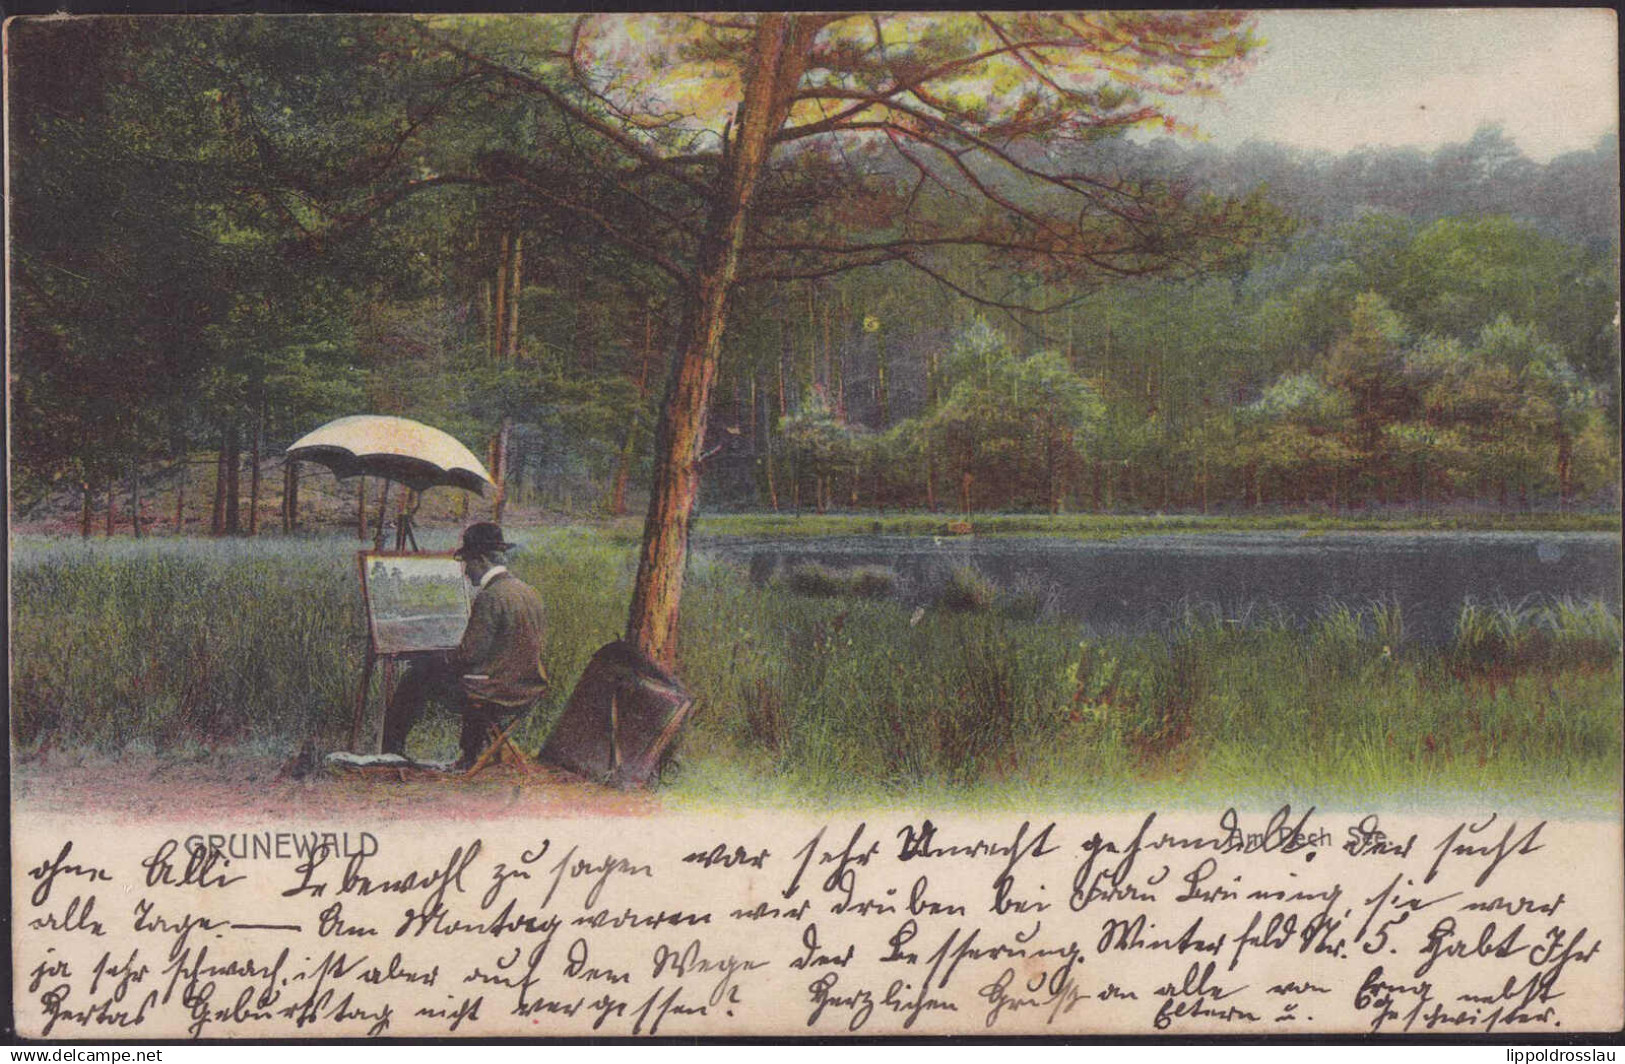 GRUNEWALD
Am Pech See.
ohne Alli Lebewohl zu sagen war sehr Unrecht gehandelt. Der sucht
alle Tage. — Am Montag waren wir drüben bei Frau Brüning, sie war
ja sehr schwach, ist aber auf dem Wege der Besserung. Winterfeld Nr. 5. Habt Ihr
Hertas Geburtstag nicht vergessen? Herzlichen Gruß an alle von nebst
Eltern u. Geschwister.
delcampe.net
lippoldrosslau